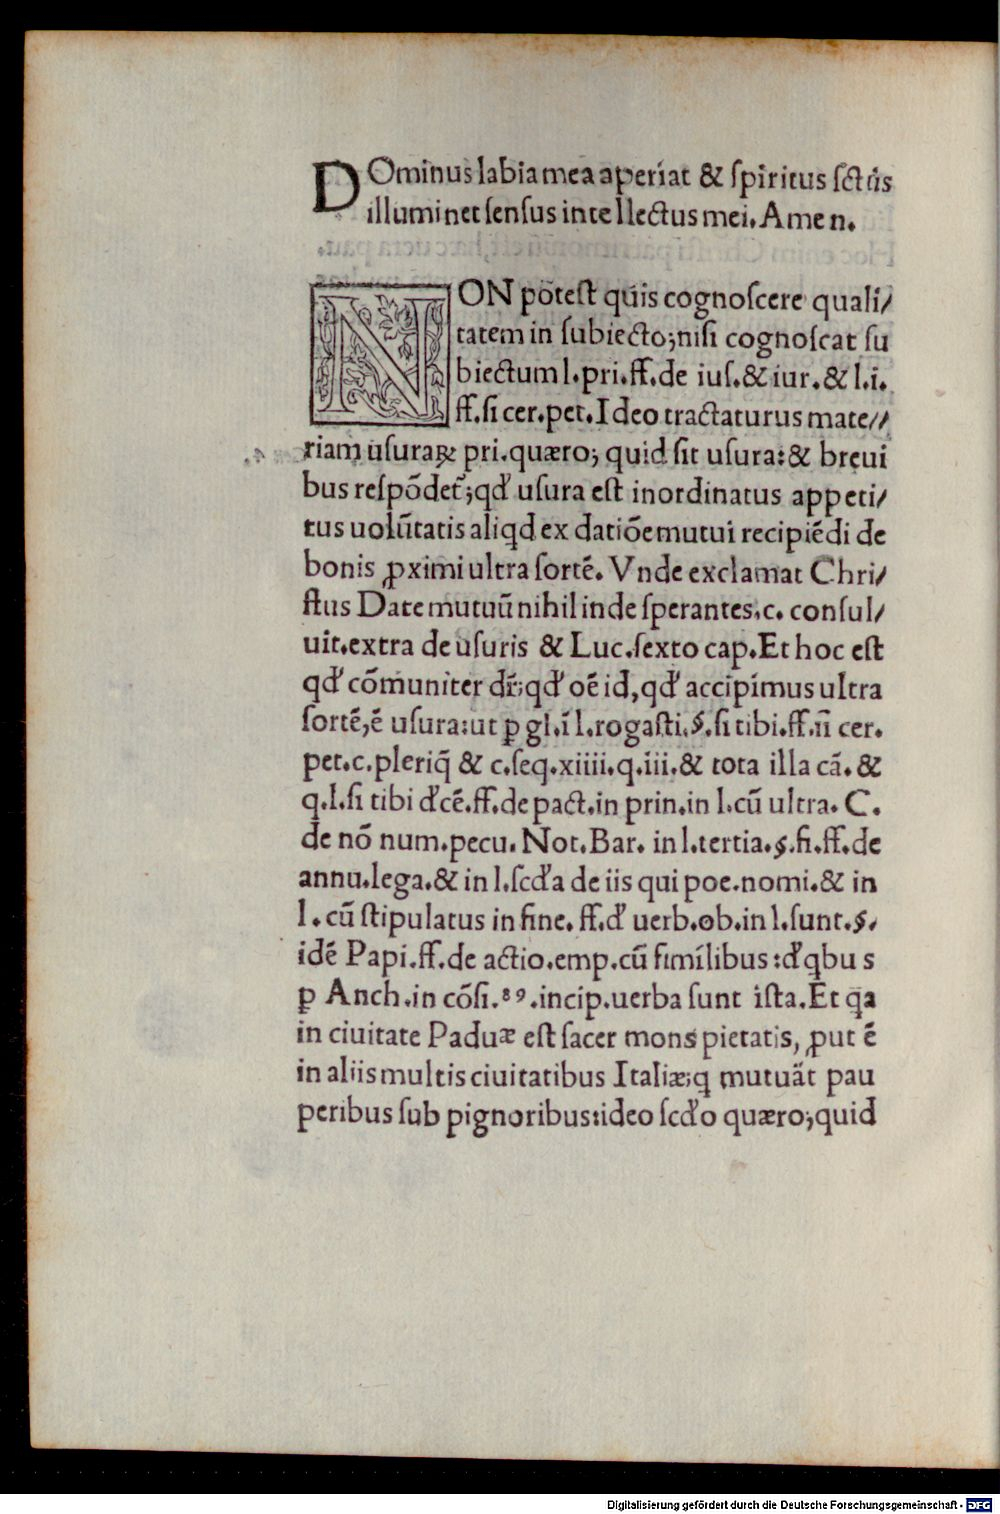 DOminus labia mea aperiat & ſpiritus ſctūs
illuminet ſenſus intellectus mei. Amen.
NON poteſt quis cognoſcere quali/
tatem in ſubiecto; niſi cognoſcat ſu
biectum l. pri. ff. de iuſ. & iur. & l. i.
ff. ſi cer. pet. Ideo tractaturus mate//
riam uſuraꝝ pri. quæro; quid ſit uſura: & breui
bus reſpōdet᷑; qđ uſura eſt inordinatus appeti/
tus uolūtatis aliqd ex datiōe mutui recipiēdi de
bonis ꝓximi ultra ſortē. Vnde exclamat Chri/
ſtus Date mutuū nihil inde ſperantes. c. conſul/
uit. extra de uſuris & Luc. ſexto cap. Et hoc eſt
qđ cōmuniter dr̄; qđ oē id, qđ accipimus ultra
ſortē, ē uſura: ut ꝑ gl. ī l. rogaſti. §. ſi tibi. ff. ſi cer.
pet. c. pleriq̄ & c. ſeq. xiiii. q. iii. & tota illa cā. &
q. l. ſi tibi đcē. ff. de pact. in prin. in l. cū ultra. C.
de nō num. pecu. Not. Bar. in l. tertia. §. fi. ff. de
annu. lega. & in l. ſcđa de iis qui poe. nomi. & in
l. cū ſtipulatus in fine. ff. đ uerb. ob. in l. ſunt. §.
idē Papi. ff. de actio. emp. cū ſimilibus: đ qbus
ꝑ Anch. in cōſi. 89. incip. uerba ſunt iſta. Et qa
in ciuitate Paduæ eſt ſacer mons pietatis, ꝓut ē
in aliis multis ciuitatibus Italiæ; q mutuāt pau
peribus ſub pignoribus: ideo ſcđo quæro; quid
Digitalisierung gefördert durch die Deutsche Forschungsgemeinschaft - DFG